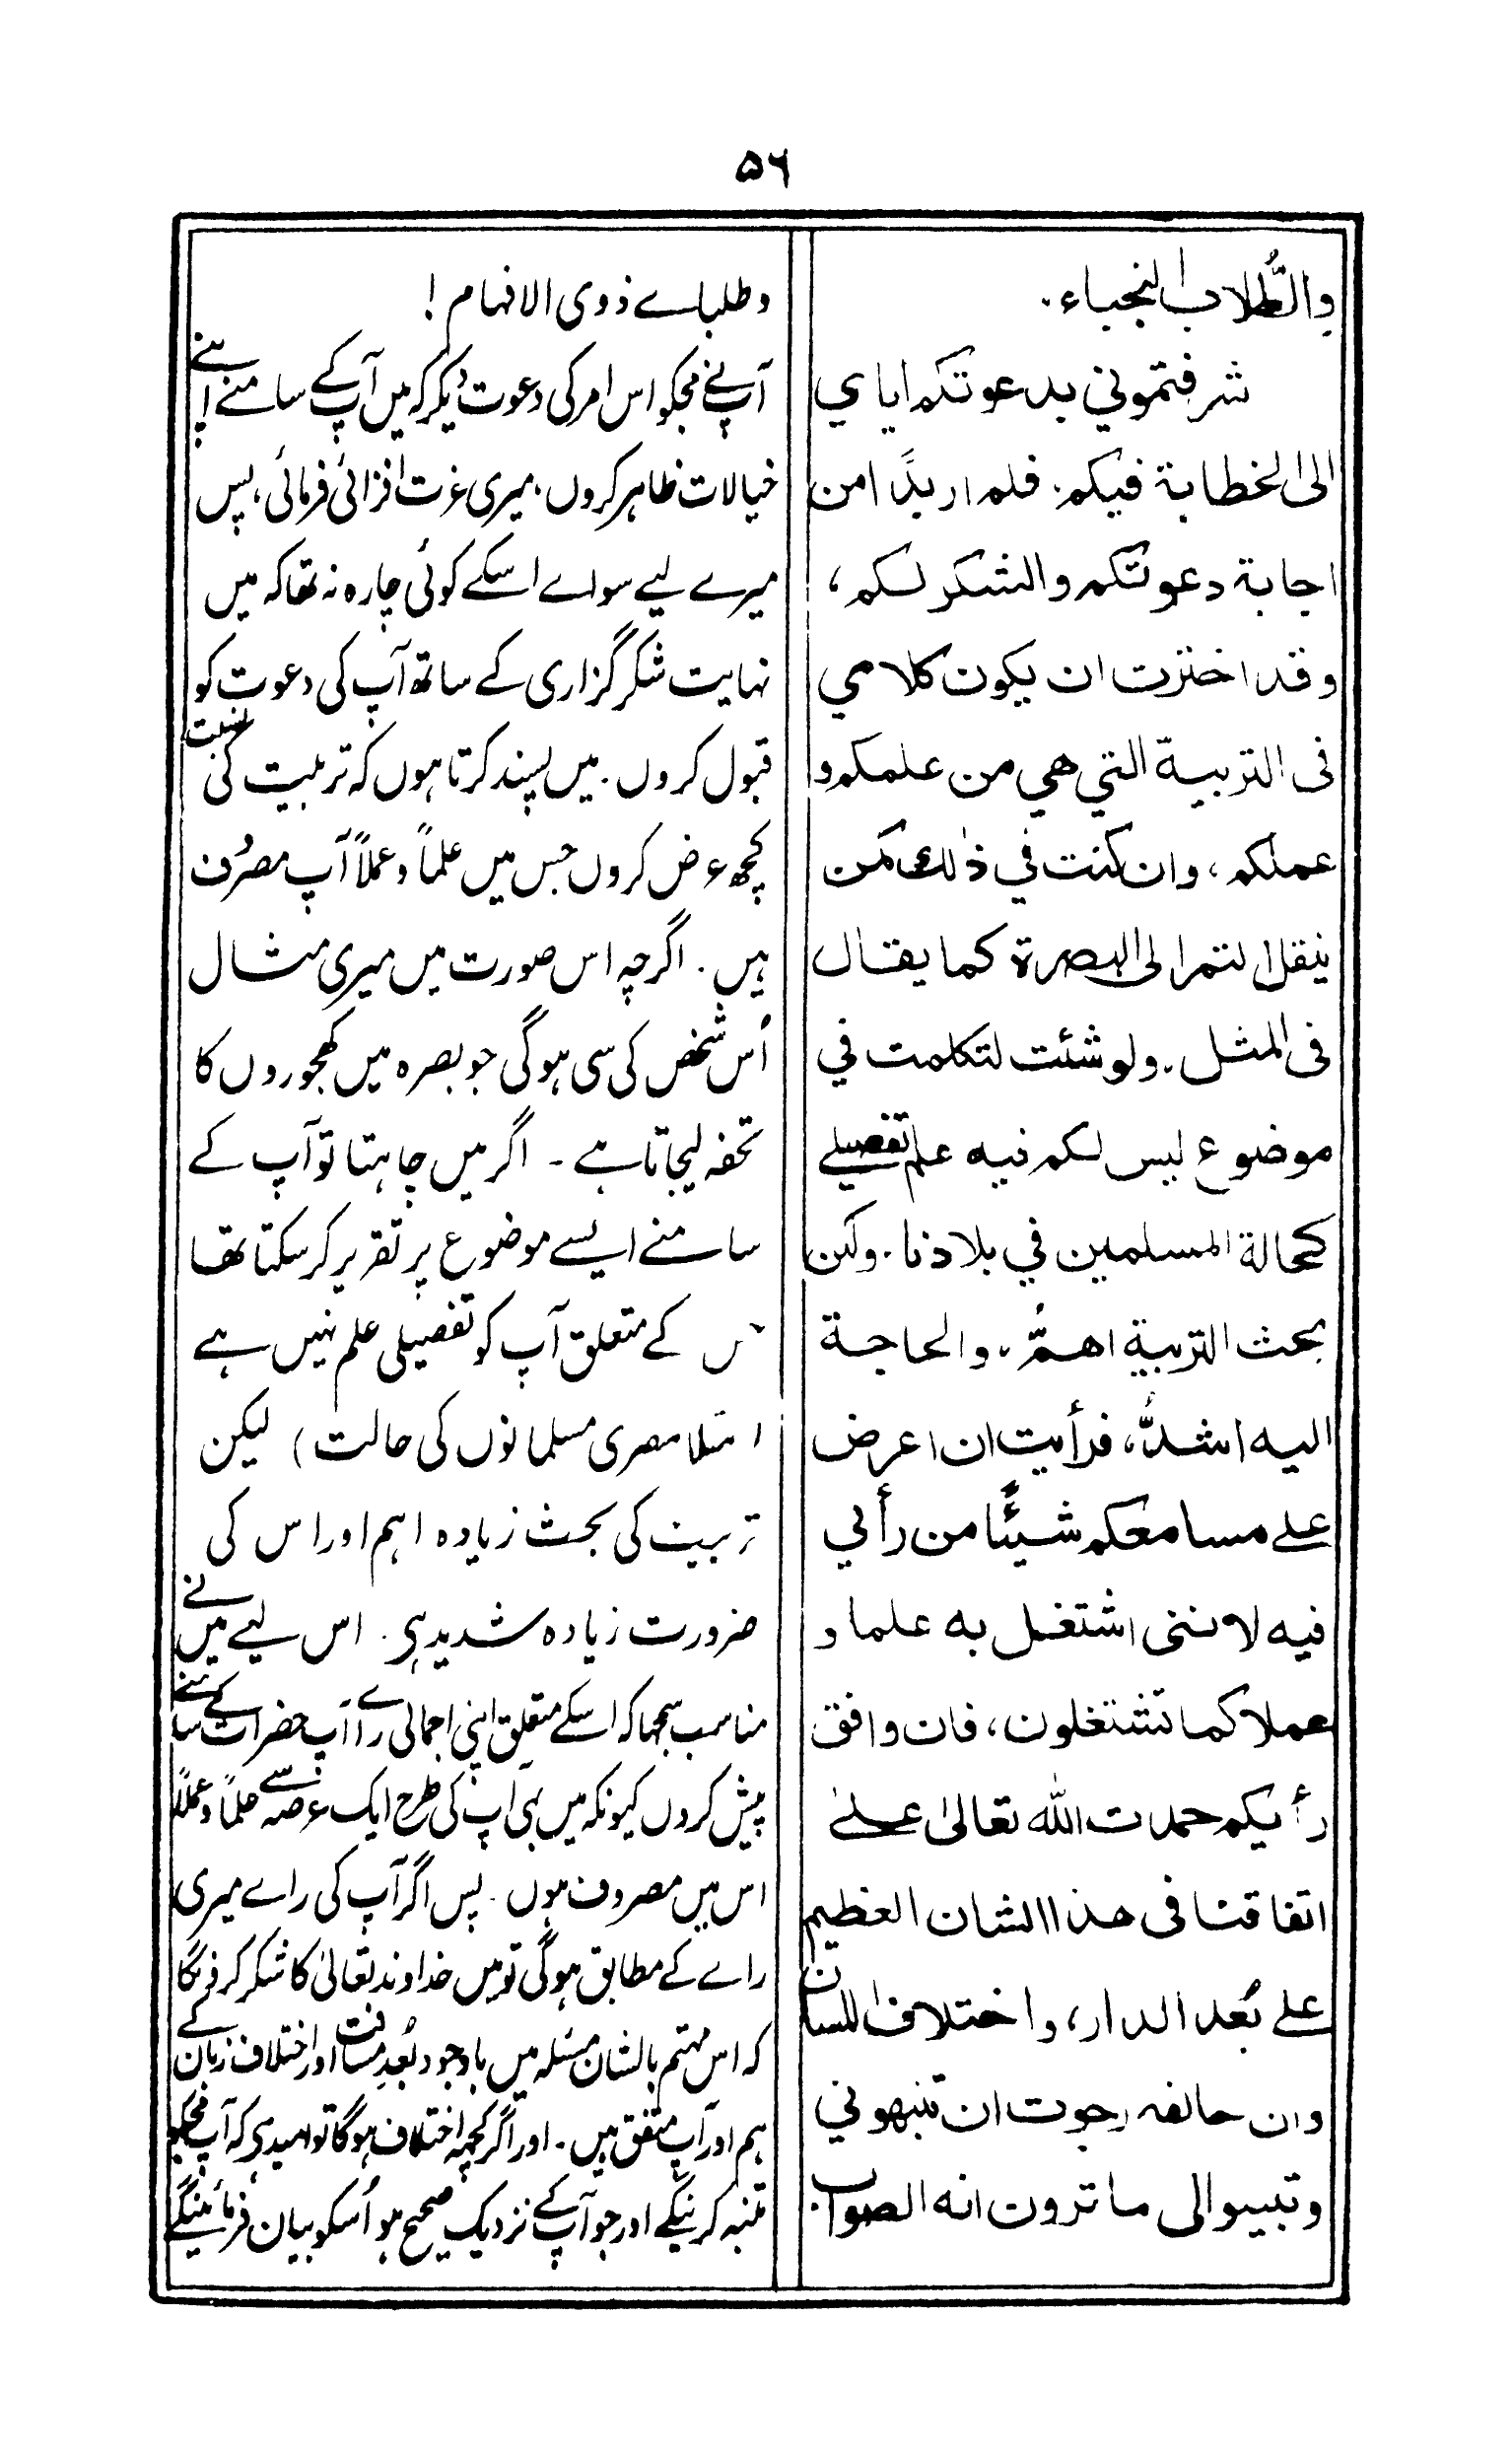 ۵۶
والطُّلاب النجباء.
شرفتموني بدعوتكم اياي
الى الخطابة فيكم. فلم ار بدًا من
اجابة دعوتكم والشكر لكم،
وقد اخترت ان يكون كلامي
فى التربية التي هي من علمكم و
عملكم، وان كنت في ذٰلك كمن
ينقل التمر الى البصرة كما يقال
فى المثل. ولو شئت لتكلمت في
موضوع ليس لكم فيه علم تفصيلے
كحالة المسلمين في بلادنا. ولكن
بحث التربية اهمُّ، والحاجة
اليه اشدُّ، فرأيت ان اعرض
علے مسامعكم شيئًا من رأيي
فيه لاننى اشتغل به علما و
عملا كما تشتغلون، فان وافق
رأيكم حمدت الله تعالىٰ علےٰ
اتفاقنا فى هذا الشان العظيم
علے بُعد الدار، واختلاف اللسان
وان خالفه رجوت ان تنبهوني
وتبينوا لى ما ترون انه الصواب.
وطلباے ذوی الافہام!
آپنے مجکو اس امر کی دعوت دیکر کہ میں آپ کے سامنے اپنے
خیالات ظاہر کروں، میری عزت افزائی فرمائی، پس
میرے لیے سواے اسکے کوئی چارہ نہ تھا کہ میں
نہایت شکرگزاری کے ساتھ آپ کی دعوت کو
قبول کروں. میں پسند کرتا ہوں کہ تربیت کی نسبت
کچھ عرض کروں جس میں علماً و عملاً آپ مصرُوف
ہیں. اگرچہ اس صورت میں میری مثال
اُس شخص کی سی ہوگی جو بصرہ میں کھجوروں کا
تحفہ لیجاتا ہے - اگر میں چاہتا تو آپ کے
سامنے ایسے موضوع پر تقریر کر سکتا تھا
جس کے متعلق آپ کو تفصیلی علم نہیں ہے
(مثلا مصری مسلمانوں کی حالت) لیکن
تربیت کی بحث زیادہ اہم اور اس کی
ضرورت زیادہ شدید ہی. اس لیے میں نے
مناسب سمجھا کہ اسکے متعلق اپنی اجمالی راے آپ حضرات کے سامنے
پیش کروں کیونکہ میں بھی آپ کی طرح ایک عرصہ سے علماً و عملاً
اس میں مصروف ہوں. پس اگر آپ کی راے میری
راے کے مطابق ہوگی تو میں خداوند تعالیٰ کا شکر کرونگا
کہ اس مہتم بالشان مسئلہ میں باوجود بُعدِ مسافت اور اختلاف زبان کے
ہم اور آپ متفق ہیں. اور اگر کچھ اختلاف ہوگا تو امید ہی کہ آپ مجکو
متنبہ کرینگے اور جو آپ کے نزدیک صحیح ہو اُسکو بیان فرمائینگے